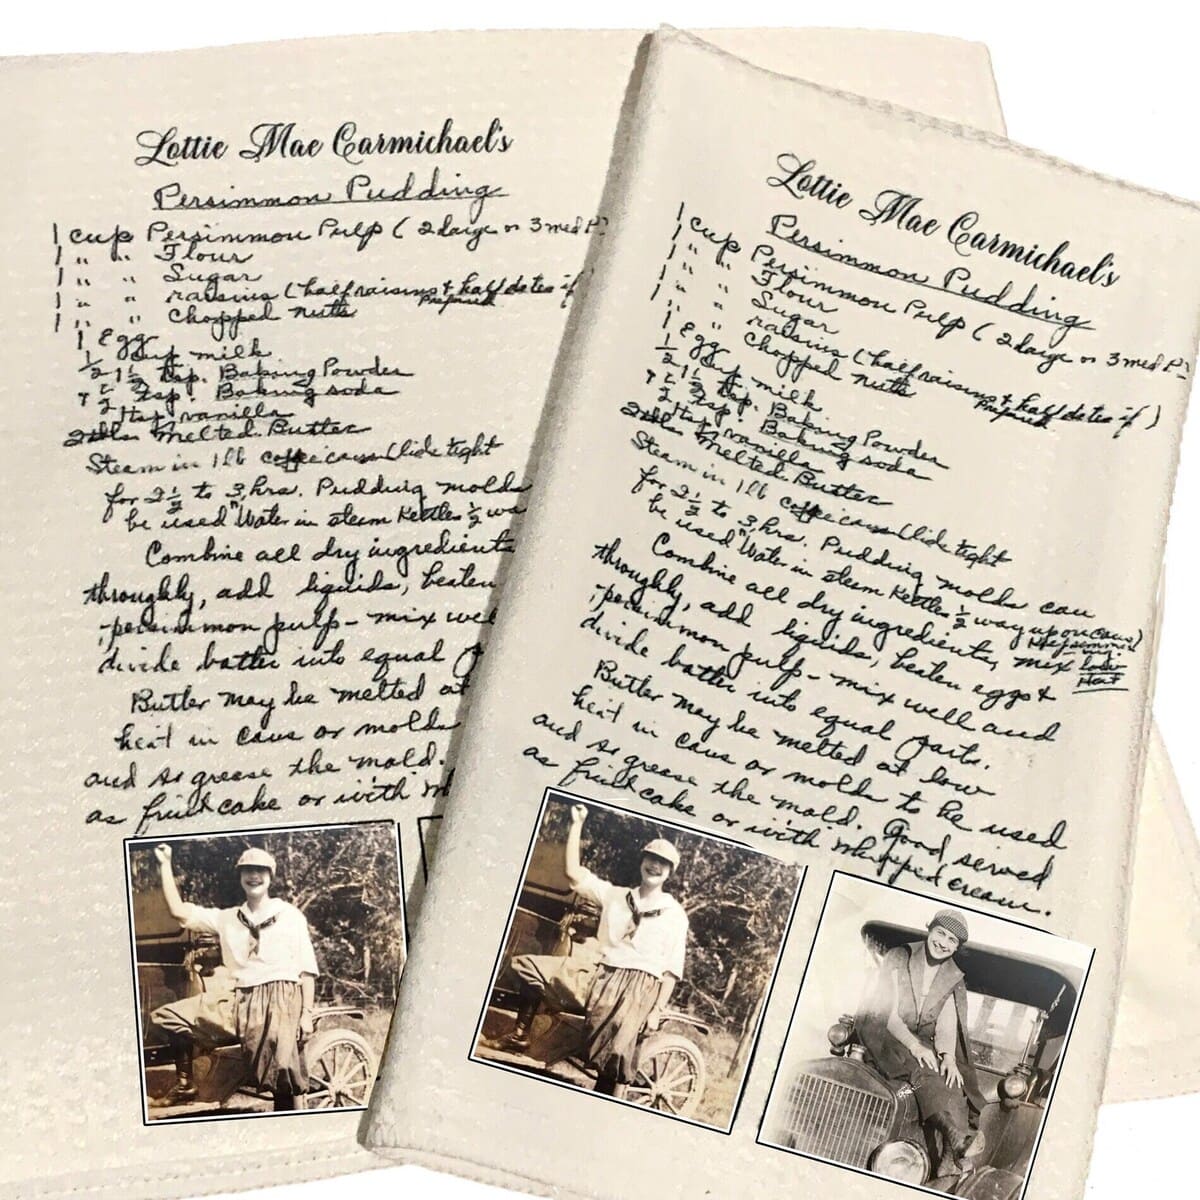 Lottie Mae Carmichael's
Persimmon Pudding
1 cup Persimmon Pulp ( 2 large or 3 med P
1 " " Flour
1 " " Sugar
1 " " raisins ( half raisins & half dates if
Prepared
1 " " chopped nuts
1 Egg
1/2 cup milk
1 1/2 tsp. Baking Powder
1/2 tsp. Baking soda
1 tsp vanilla
2 tbls Melted Butter
Steam in 1 lb coffee cans (lids tight
for 2 1/2 to 3 hrs. Pudding molds
be used Water in steam Kettles 1/2 wa
Combine all dry ingredients
throughly, add liquids, beaten
persimmon pulp - mix wel
divide batter into equal p
Butter may be melted at
heat in cans or molds
and so grease the mold.
as fruit cake or with wh
Lottie Mae Carmichael's
Persimmon Pudding
1 cup Persimmon Pulp ( 2 large or 3 med P
1 " " Flour
1 " " Sugar
1 " " raisins ( half raisins & half dates if )
Prepared
1 " " Chopped nuts
1 Egg
1/2 cup milk
1 1/2 tsp. Baking Powder
1/2 tsp. Baking soda
1 tsp vanilla
2 tbls Melted Butter
Steam in 1 lb coffee cans (lids tight
for 2 1/2 to 3 hrs. Pudding molds can
be used Water in steam Kettles 1/2 way up on cans)
Combine all dry ingredients, mix low
Heat
throughly, add liquids, beaten eggs &
persimmon pulp - mix well and
divide batter into equal parts.
Butter may be melted at low
heat in cans or molds to be used
and so grease the mold. Good served
as fruit cake or with whipped cream.